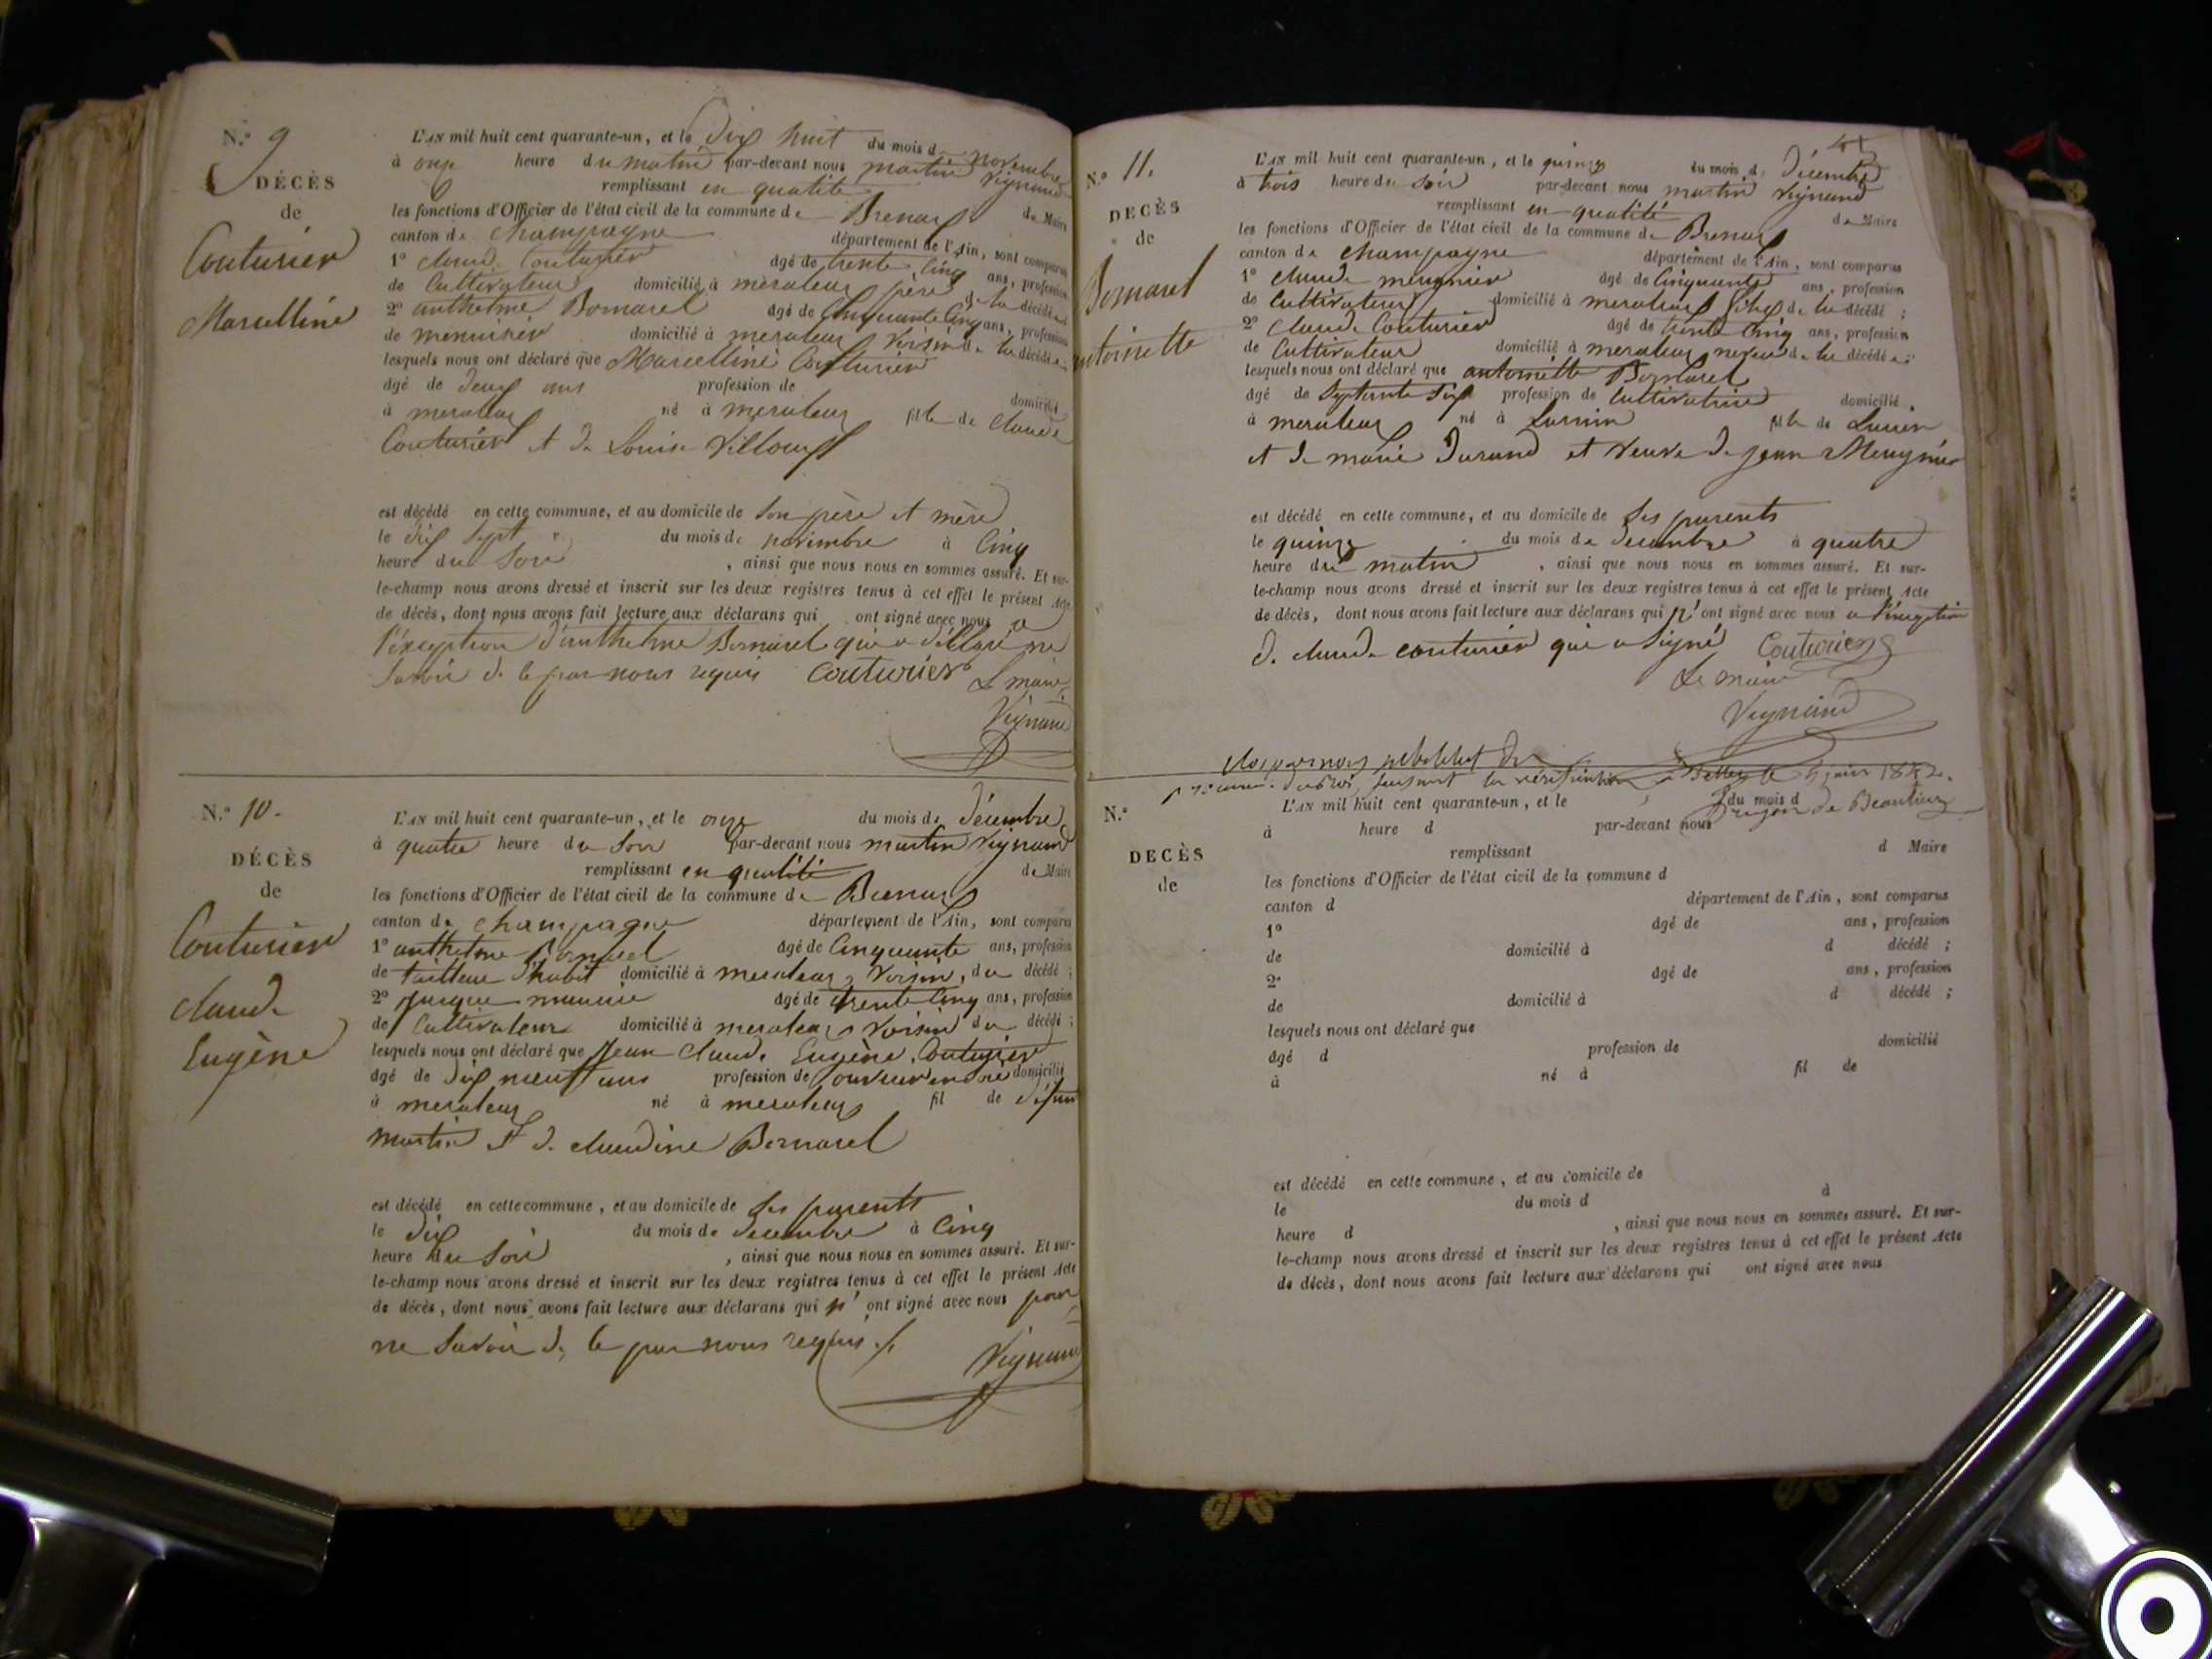 N.º 9
DÉCÈS
de
Couturier
Marcelline
L'AN mil huit cent quarante-un, et le Dix huit du mois de novembre
à onze heure du matin par-devant nous martin Vignand
remplissant en qualité de Maire
les fonctions d'Officier de l'état civil de la commune de Brenaz
canton de Champagne département de l'Ain, sont comparus
1º Claude Couturier âgé de trente cinq ans, profession
de Cultivateur domicilié à meraleaz père de la décédée
2º anthelme Bornarel âgé de Cinquante Cinq ans, profession
de menuisier domicilié à meraleaz Voisin de la décédée
lesquels nous ont déclaré que Marcelline Couturier
âgé de deux ans profession de domicilié
à meraleaz né à meraleaz fille de Claude
Couturier et de Louise Villoux
est décédé en cette commune, et au domicile de son père et mère
le dix sept du mois de novembre à Cinq
heure du Soir , ainsi que nous nous en sommes assuré. Et sur-
le-champ nous avons dressé et inscrit sur les deux registres tenus à cet effet le présent Acte
de décès, dont nous avons fait lecture aux déclarans qui ont signé avec nous a
l'éxception d'anthelme Bornarel qui a déclaré ne
Savoir de le par nous requis Couturier Le maire
Vignand
N.º 10.
DÉCÈS
de
Couturier
Claude
Eugène
L'AN mil huit cent quarante-un, et le onze du mois de décembre
à quatre heure du Soir par-devant nous martin Vignand
remplissant en qualité de Maire
les fonctions d'Officier de l'état civil de la commune de Brenaz
canton de Champagne département de l'Ain, sont comparus
1º anthelme Bornarel âgé de Cinquante ans, profession
de tailleur d'habit domicilié à meraleaz, Voisin, du décédé ;
2º âgé de trente Cinq ans, profession
de Cultivateur domicilié à meraleaz Voisin du décédé ;
lesquels nous ont déclaré que Jean Claude Eugène Couturier
âgé de dix neuf ans profession de domicilié
à meraleaz né à meraleaz fil de défun
martin et de Claudine Bornarel
est décédé en cette commune, et au domicile de Ses parents
le Dix du mois de decembre à Cinq
heure du Soir , ainsi que nous nous en sommes assuré. Et sur-
le-champ nous avons dressé et inscrit sur les deux registres tenus à cet effet le présent Acte
de décès, dont nous avons fait lecture aux déclarans qui n' ont signé avec nous pour
ne Savoir de le par nous requis ./.
Vignand
N.º 11.
DÉCÈS
de
Bornarel
antoinette
L'AN mil huit cent quarante-un, et le quinze du mois de Décembre
à trois heure du Soir par-devant nous martin Vignand
remplissant en qualité de Maire
les fonctions d'Officier de l'état civil de la commune de Brenaz
canton de Champagne département de l'Ain, sont comparus
1º Claude meugnier âgé de Cinquante ans, profession
de Cultivateur domicilié à meraleaz fils de la décédé ;
2º Claude Couturier âgé de trente Cinq ans, profession
de Cultivateur domicilié à meraleaz neveu de la décédé ;
lesquels nous ont déclaré que antoinette Bornarel
âgé de Septante Six profession de Cultivatrice domicilié
à meraleaz né à fille de
et de marie Durand et Veuve de jean Meugnier
est décédé en cette commune, et au domicile de Ses parents
le quinze du mois de decembre à quatre
heure du matin , ainsi que nous nous en sommes assuré. Et sur-
le-champ nous avons dressé et inscrit sur les deux registres tenus à cet effet le présent Acte
de décès, dont nous avons fait lecture aux déclarans qui n' ont signé avec nous a l'éxception
de Claude Couturier qui a Signé Couturier
Le maire
Vignand
N.º
DÉCÈS
de
L'AN mil huit cent quarante-un, et le du mois d
à heure d par-devant nous
remplissant d Maire
les fonctions d'Officier de l'état civil de la commune d
canton d département de l'Ain, sont comparus
1º âgé de ans, profession
de domicilié à d décédé ;
2º âgé de ans, profession
de domicilié à d décédé ;
lesquels nous ont déclaré que
âgé d profession de domicilié
à né à fil de
est décédé en cette commune, et au domicile de
le du mois d à
heure d , ainsi que nous nous en sommes assuré. Et sur-
le-champ nous avons dressé et inscrit sur les deux registres tenus à cet effet le présent Acte
de décès, dont nous avons fait lecture aux déclarans qui ont signé avec nous